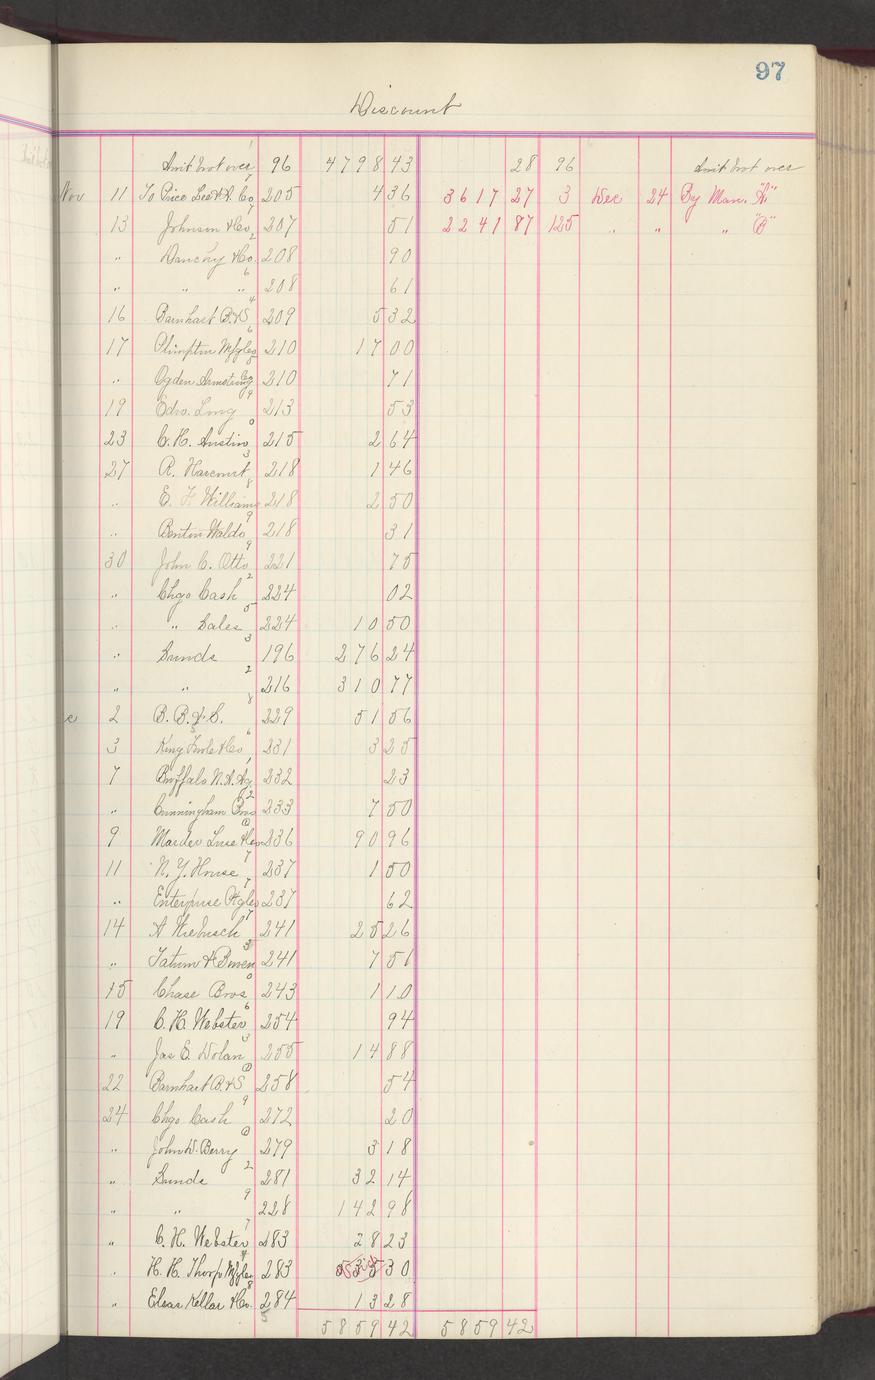 97
Discount
Amt brot over 96 4798 43 28 96 Amt brot over
Nov 11 To Price Lee & A. Co 205 4 36 3617 27 3 Dec 24 By Man. "A"
13 Johnson & Co 207 51 2241 87 125 " " " "B"
" & Co. 208 90
" " " 208 61
16 Barnhart B. & S 209 5 32
17 Plimpton Mfg Co 210 17 00
" Ogden Armstrong 210 71
19 Edw. Long 213 53
23 C. H. Austin 215 2 64
27 R. Harcourt 218 1 46
" E. F. Williams 218 2 50
" Benton Waldo 218 31
30 John C. Otto 221 75
" Chgo Cash 224 02
" " Sales 224 10 50
" Sunds 196 276 24
" " 216 310 77
c 2 B. B. & S. 229 51 56
3 King & Co 231 3 25
7 Buffalo N. A. Ag 232 23
" Cunningham Bros 233 7 50
9 Marder Luse & Co 236 90 96
11 N. Y. House 237 1 50
" Enterprise Co 237 62
14 A Wiebusch 241 25 26
" Tatum & Bowen 241 7 51
15 Chase Bros 243 1 10
19 C. H. Webster 254 94
" Jas E. Dolan 255 14 88
22 Barnhart B. & S 258 54
24 Chgo Cash 272 20
" John W. Berry 279 3 18
" Sunds 281 32 14
" " 228 142 98
" C. H. Webster 283 28 23
" H. H. Thorp Mfg Co 283 30
" Kellar & Co. 284 13 28
5859 42 5859 42